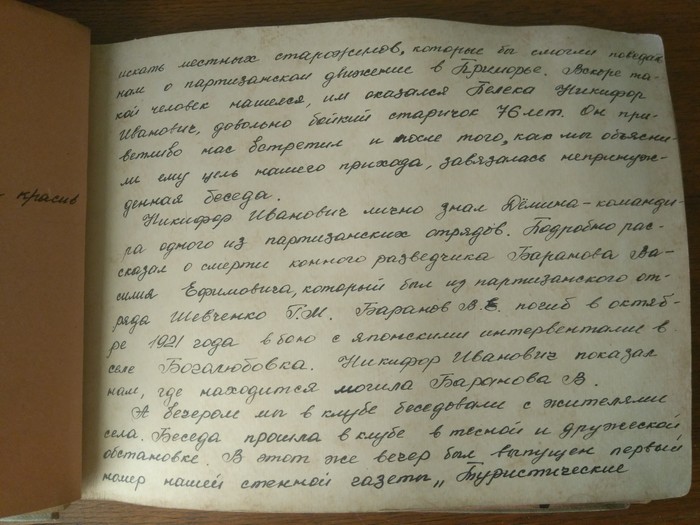 - красив
искать местных старожилов, которые бы смогли поведать
нам о партизанском движение в Приморье. Вскоре та-
кой человек нашелся, им оказался Пелека Никифор
Иванович, довольно бойкий старичок 76 лет. Он при-
ветливо нас встретил и после того, как мы объясни-
ли ему цель нашего прихода, завязалась непринуж-
денная беседа.
Никифор Иванович лично знал Дёмина-команди-
ра одного из партизанских отрядов. Подробно рас-
сказал о смерти конного разведчика Баранова Ва-
силия Ефимовича, который был из партизанского от-
ряда Шевченко Г.М. Баранов В.Е. погиб в октяб-
ре 1921 года в бою с японскими интервентами в
селе Боголюбовка. Никифор Иванович показал
нам, где находится могила Баранова В.
А вечером мы в клубе беседовали с жителями
села. Беседа прошла в клубе в тесной и дружеской
обстановке. В этот же вечер был выпущен первый
номер нашей стенной газеты „Туристические